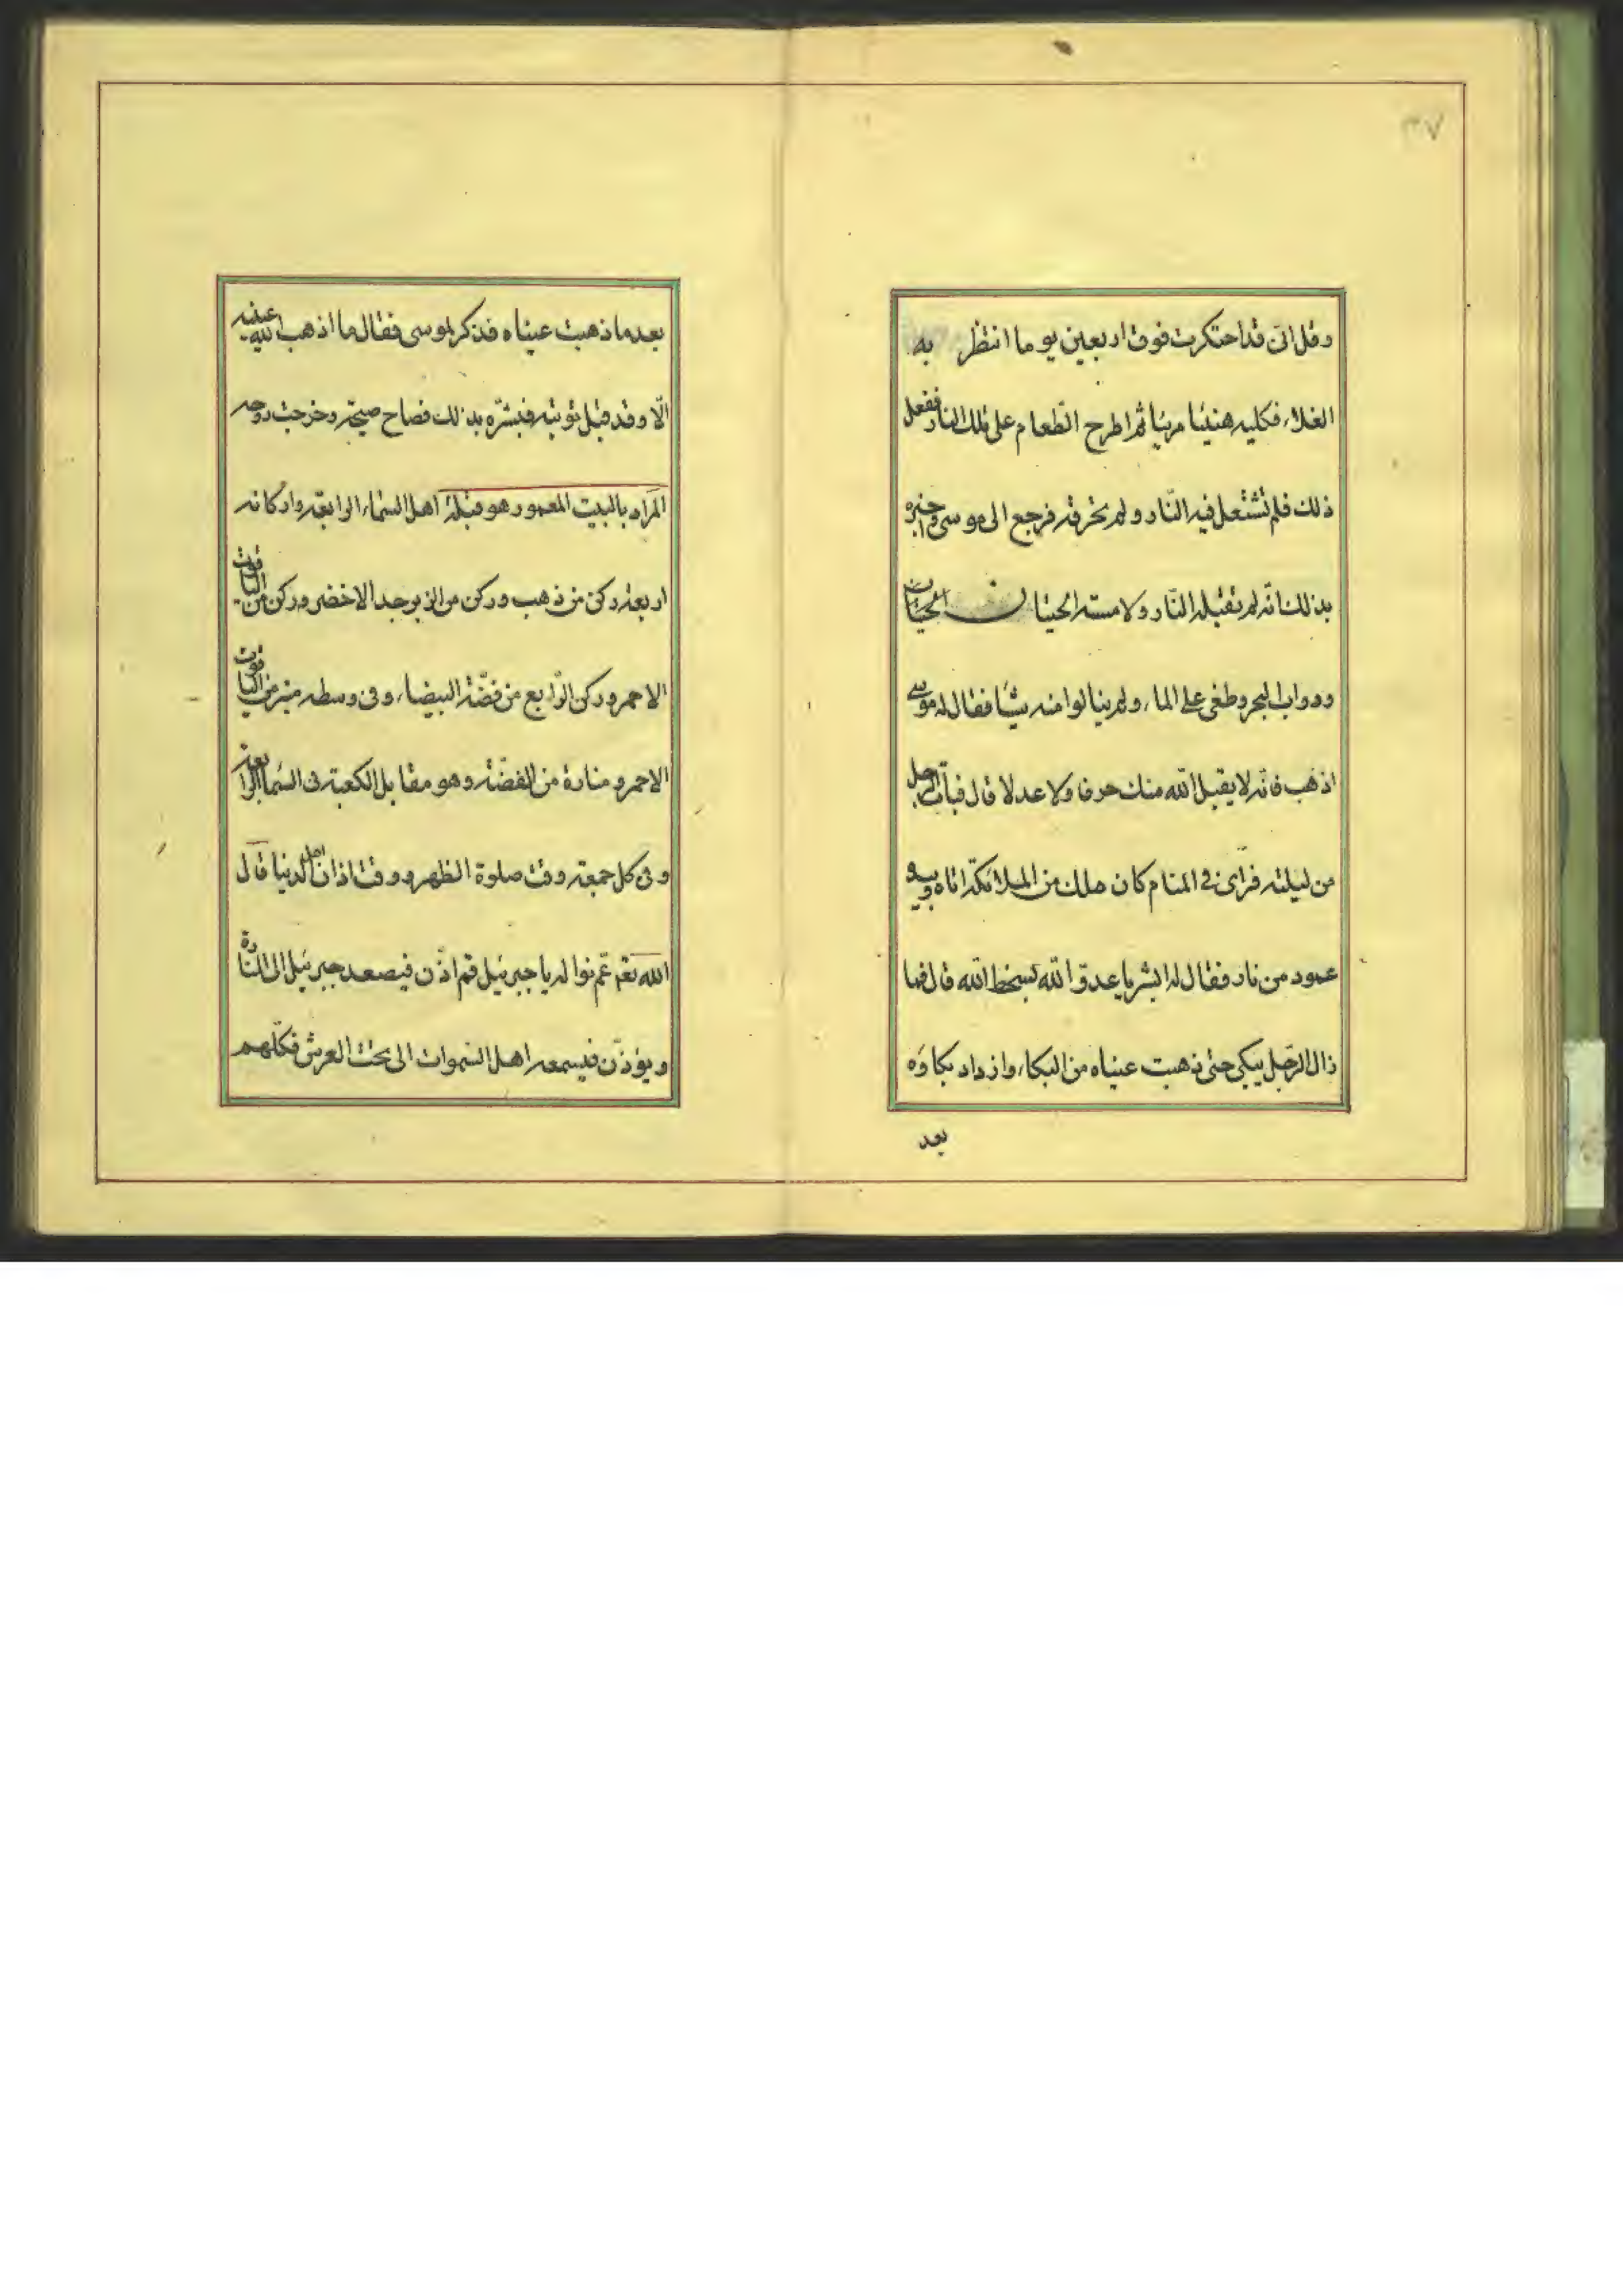 ٣٧
وقل انی قد احتكرت فوق اربعین یوما انتظر به
الغلاء فكلیه هنیئا مریئا ثم اطرح الطعام علی تلك النار ففعل
ذلك فلم تشتعل فیه النار ولم تحرقه فرجع الی موسی واخبره
بذلك انه لم تقبله النار ولا مسته الحیتان الحیات
ودواب البحر وطغی علی الماء ولم ینالوا منه شیئا فقال له موسی
اذهب فانه لا یقبل الله منك صرفا ولا عدلا قال فبات الرجل
من لیلته فرأی فی المنام كان ملك من الملائكة اتاه وبیده
عمود من نار فقال له ابشر یا عدو الله بسخط الله قال فما
زال الرجل یبكی حتی ذهبت عیناه من البكاء وازداد بكاؤه
بعد
بعد ما ذهبت عیناه فذكر لموسی فقال ما اذهب الله عینیه
الا وقد قبل توبته فبشره بذلك فصاح صیحة وخرجت روحه
المراد بالبیت المعمور هو قبلة اهل السماء الرابعة واركانه
اربعة ركن من ذهب وركن من الزبرجد الاخضر وركن من الیاقوت
الاحمر وركن الرابع من فضة البیضاء وفی وسطه منبر من الیاقوت
الاحمر ومنارة من الفضة وهو مقابل الكعبة فی السماء الرابعة
وفی كل جمعة وقت صلوة الظهر ووقت اذان اهل الدنیا قال
الله تعم عم نواله یا جبرئیل قم اذن فیصعد جبرئیل الی المنارة
ویؤذن فیسمعه اهل السموات الی تحت العرش فكلهم